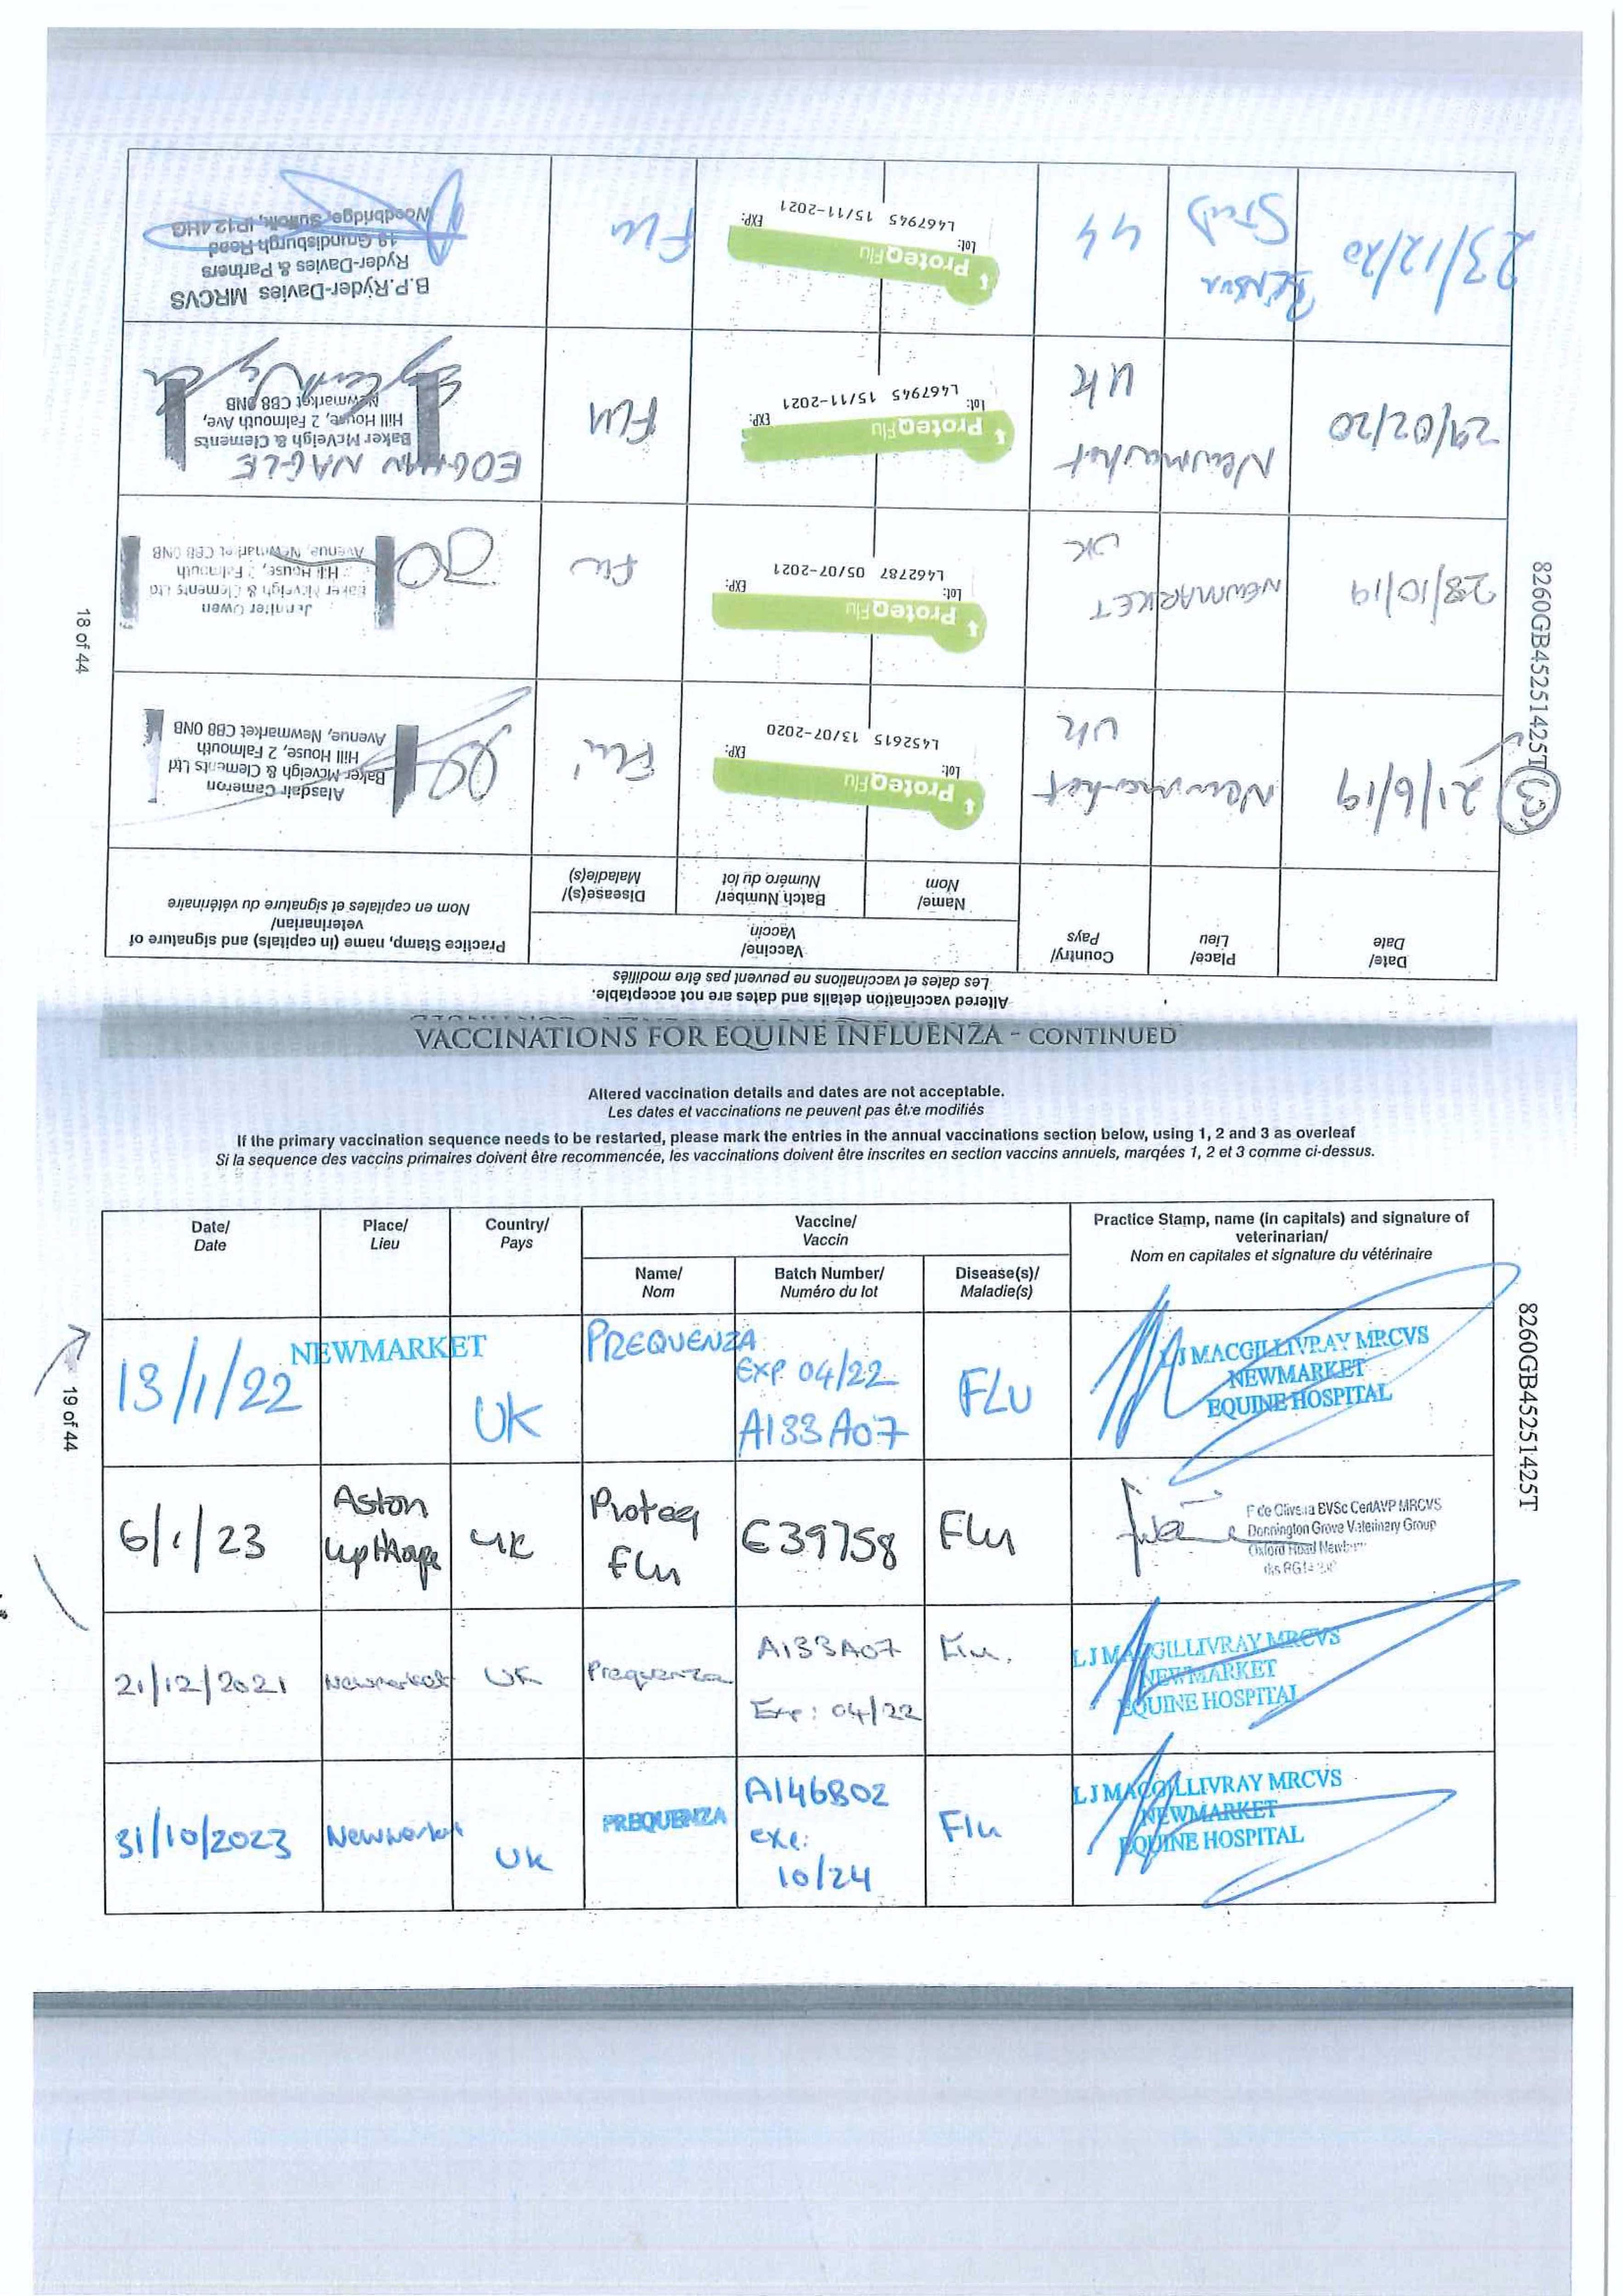 Altered vaccination details and dates are not acceptable.
Les dates et vaccinations ne peuvent pas être modifiés
Date/
Date
Place/
Lieu
Country/
Pays
Vaccine/
Vaccin
Practice Stamp, name (in capitals) and signature of
veterinarian/
Nom en capitales et signature du vétérinaire
Name/
Nom
Batch Number/
Numéro du lot
Disease(s)/
Maladie(s)
3
21/6/19
Newmarket
UK
ProteqFlu
Lot: EXP:
L452615 13/07-2020
Flu
Alasdair Cameron
Baker Mcveigh & Clements Ltd
Hill House, 2 Falmouth
Avenue, Newmarket CB8 0NB
28/10/19
NEWMARKET
UK
ProteqFlu
Lot: EXP:
L462787 05/07-2021
Flu
Jennifer Owen
Baker Mcveigh & Clements Ltd
Hill House, 2 Falmouth
Avenue, Newmarket CB8 0NB
29/02/20
Newmarket
UK
ProteqFlu
Lot: EXP:
L467945 15/11-2021
Flu
EOGHAN NAGLE
Baker McVeigh & Clements
Hill House, 2 Falmouth Ave,
Newmarket CB8 0NB
23/12/20
Stud
ProteqFlu
Lot: EXP:
L467945 15/11-2021
Flu
B.P.Ryder-Davies MRCVS
Ryder-Davies & Partners
19 Grundisburgh Road
Woodbridge, Suffolk, IP12 4HG
18 of 44
8260GB45251425T
VACCINATIONS FOR EQUINE INFLUENZA - CONTINUED
Altered vaccination details and dates are not acceptable.
Les dates et vaccinations ne peuvent pas être modifiés
If the primary vaccination sequence needs to be restarted, please mark the entries in the annual vaccinations section below, using 1, 2 and 3 as overleaf
Si la sequence des vaccins primaires doivent être recommencée, les vaccinations doivent être inscrites en section vaccins annuels, marqées 1, 2 et 3 comme ci-dessus.
Date/
Date
Place/
Lieu
Country/
Pays
Vaccine/
Vaccin
Practice Stamp, name (in capitals) and signature of
veterinarian/
Nom en capitales et signature du vétérinaire
Name/
Nom
Batch Number/
Numéro du lot
Disease(s)/
Maladie(s)
13/1/22
NEWMARKET
UK
PREQUENZA
Exp 04/22
A133A07
FLU
LJ MACGILLIVRAY MRCVS
NEWMARKET
EQUINE HOSPITAL
6/1/23
Aston
Upthorpe
UK
Proteq
Flu
E39758
Flu
F de Oliveira BVSc CertAVP MRCVS
Donnington Grove Veterinary Group
Oxford Road
21/12/2021
Newmarket
UK
Prequenza
A133A07
Exp: 04/22
Flu.
LJ MACGILLIVRAY MRCVS
NEWMARKET
EQUINE HOSPITAL
31/10/2023
Newmarket
UK
PREQUENZA
A146B02
exe:
10/24
Flu
LJ MACGILLIVRAY MRCVS
NEWMARKET
EQUINE HOSPITAL
19 of 44
8260GB45251425T